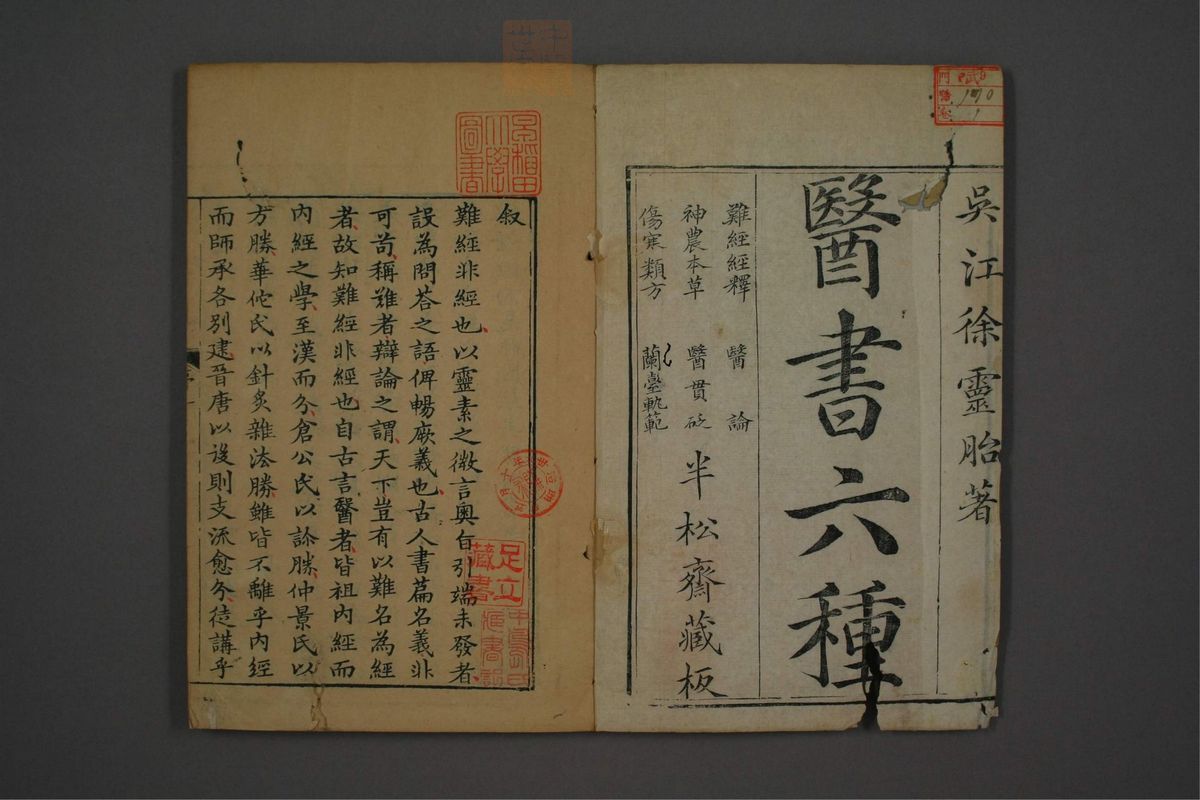 吳江徐靈胎著
醫書六種
難經經釋 醫論
神農本草 醫貫砭
傷寒類方 蘭臺軌範
半松齋藏板
叙
難經非經也以靈素之微言奧旨引端未發者
設為問荅之語俾暢厥義也古人書篇名義非
可苟稱難者辯論之謂天下豈有以難名為經
者故知難經非經也自古言醫者皆祖內經而
內經之學至漢而分倉公氏以診勝仲景氏以
方勝華佗氏以針灸雜法勝雖皆不離乎內經
而師承各別建晉唐以後則支流愈分徒講乎
早稲田大學圖書
足立藏書
170
1